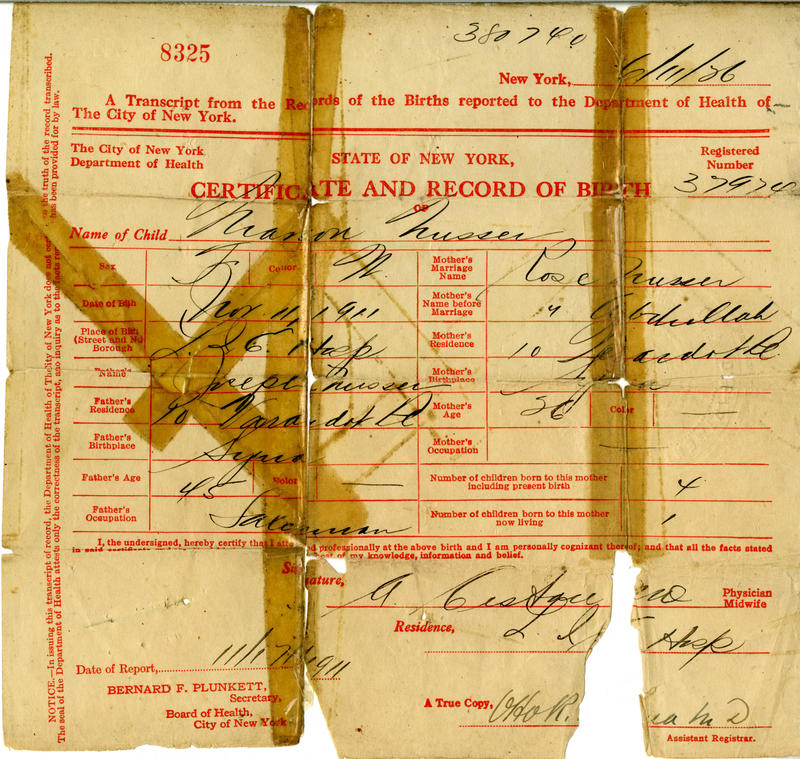 8325
380740
New York, 6/11/26
A Transcript from the Records of the Births reported to the Department of Health of
The City of New York.
The City of New York
Department of Health
STATE OF NEW YORK,
Registered
Number
CERTIFICATE AND RECORD OF BIRTH
OF
Name of Child Marion Nusser
Sex F Color W.
Mother's Marriage Name Rose Nusser
Date of Bith Nov. 11, 1911
Mother's Name before Marriage " Abdullah
Place of Birth (Street and No) Borough Hosp
Mother's Residence 10
Father's Name Joseph Nusser
Mother's Birthplace Syria
Father's Residence 10
Mother's Age 36 Color —
Father's Birthplace Syria
Mother's Occupation —
Father's Age 45 Color —
Number of children born to this mother including present birth 4
Father's Occupation Salesman
Number of children born to this mother now living 1
I, the undersigned, hereby certify that I atte d professionally at the above birth and I am personally cognizant thereof; and that all the facts stated
in said certific of my knowledge, information and belief.
Signature, A. M D
Physician
Midwife
Residence, Hosp
Date of Report, 11/17/1911
BERNARD F. PLUNKETT,
Secretary,
Board of Health,
City of New York
A True Copy, Otto R. M D
Assistant Registrar.
NOTICE.—In issuing this transcript of record, the Department of Health of The City of New York does not cer to the truth of the record transcribed.
The seal of the Department of Health attests only the correctness of the transcript, and no inquiry as to the facts re has been provided for by law.